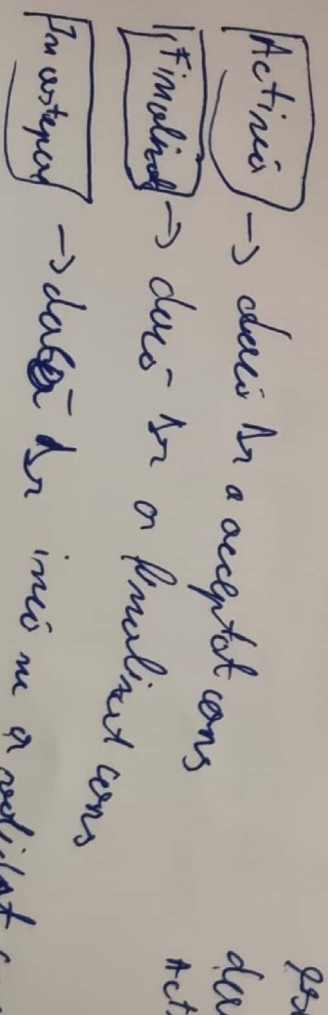 Activă → dacă Dr a acceptat cons
Finalizată → dacă Dr a finalizat cons
În așteptare → dacă Dr încă nu a validat